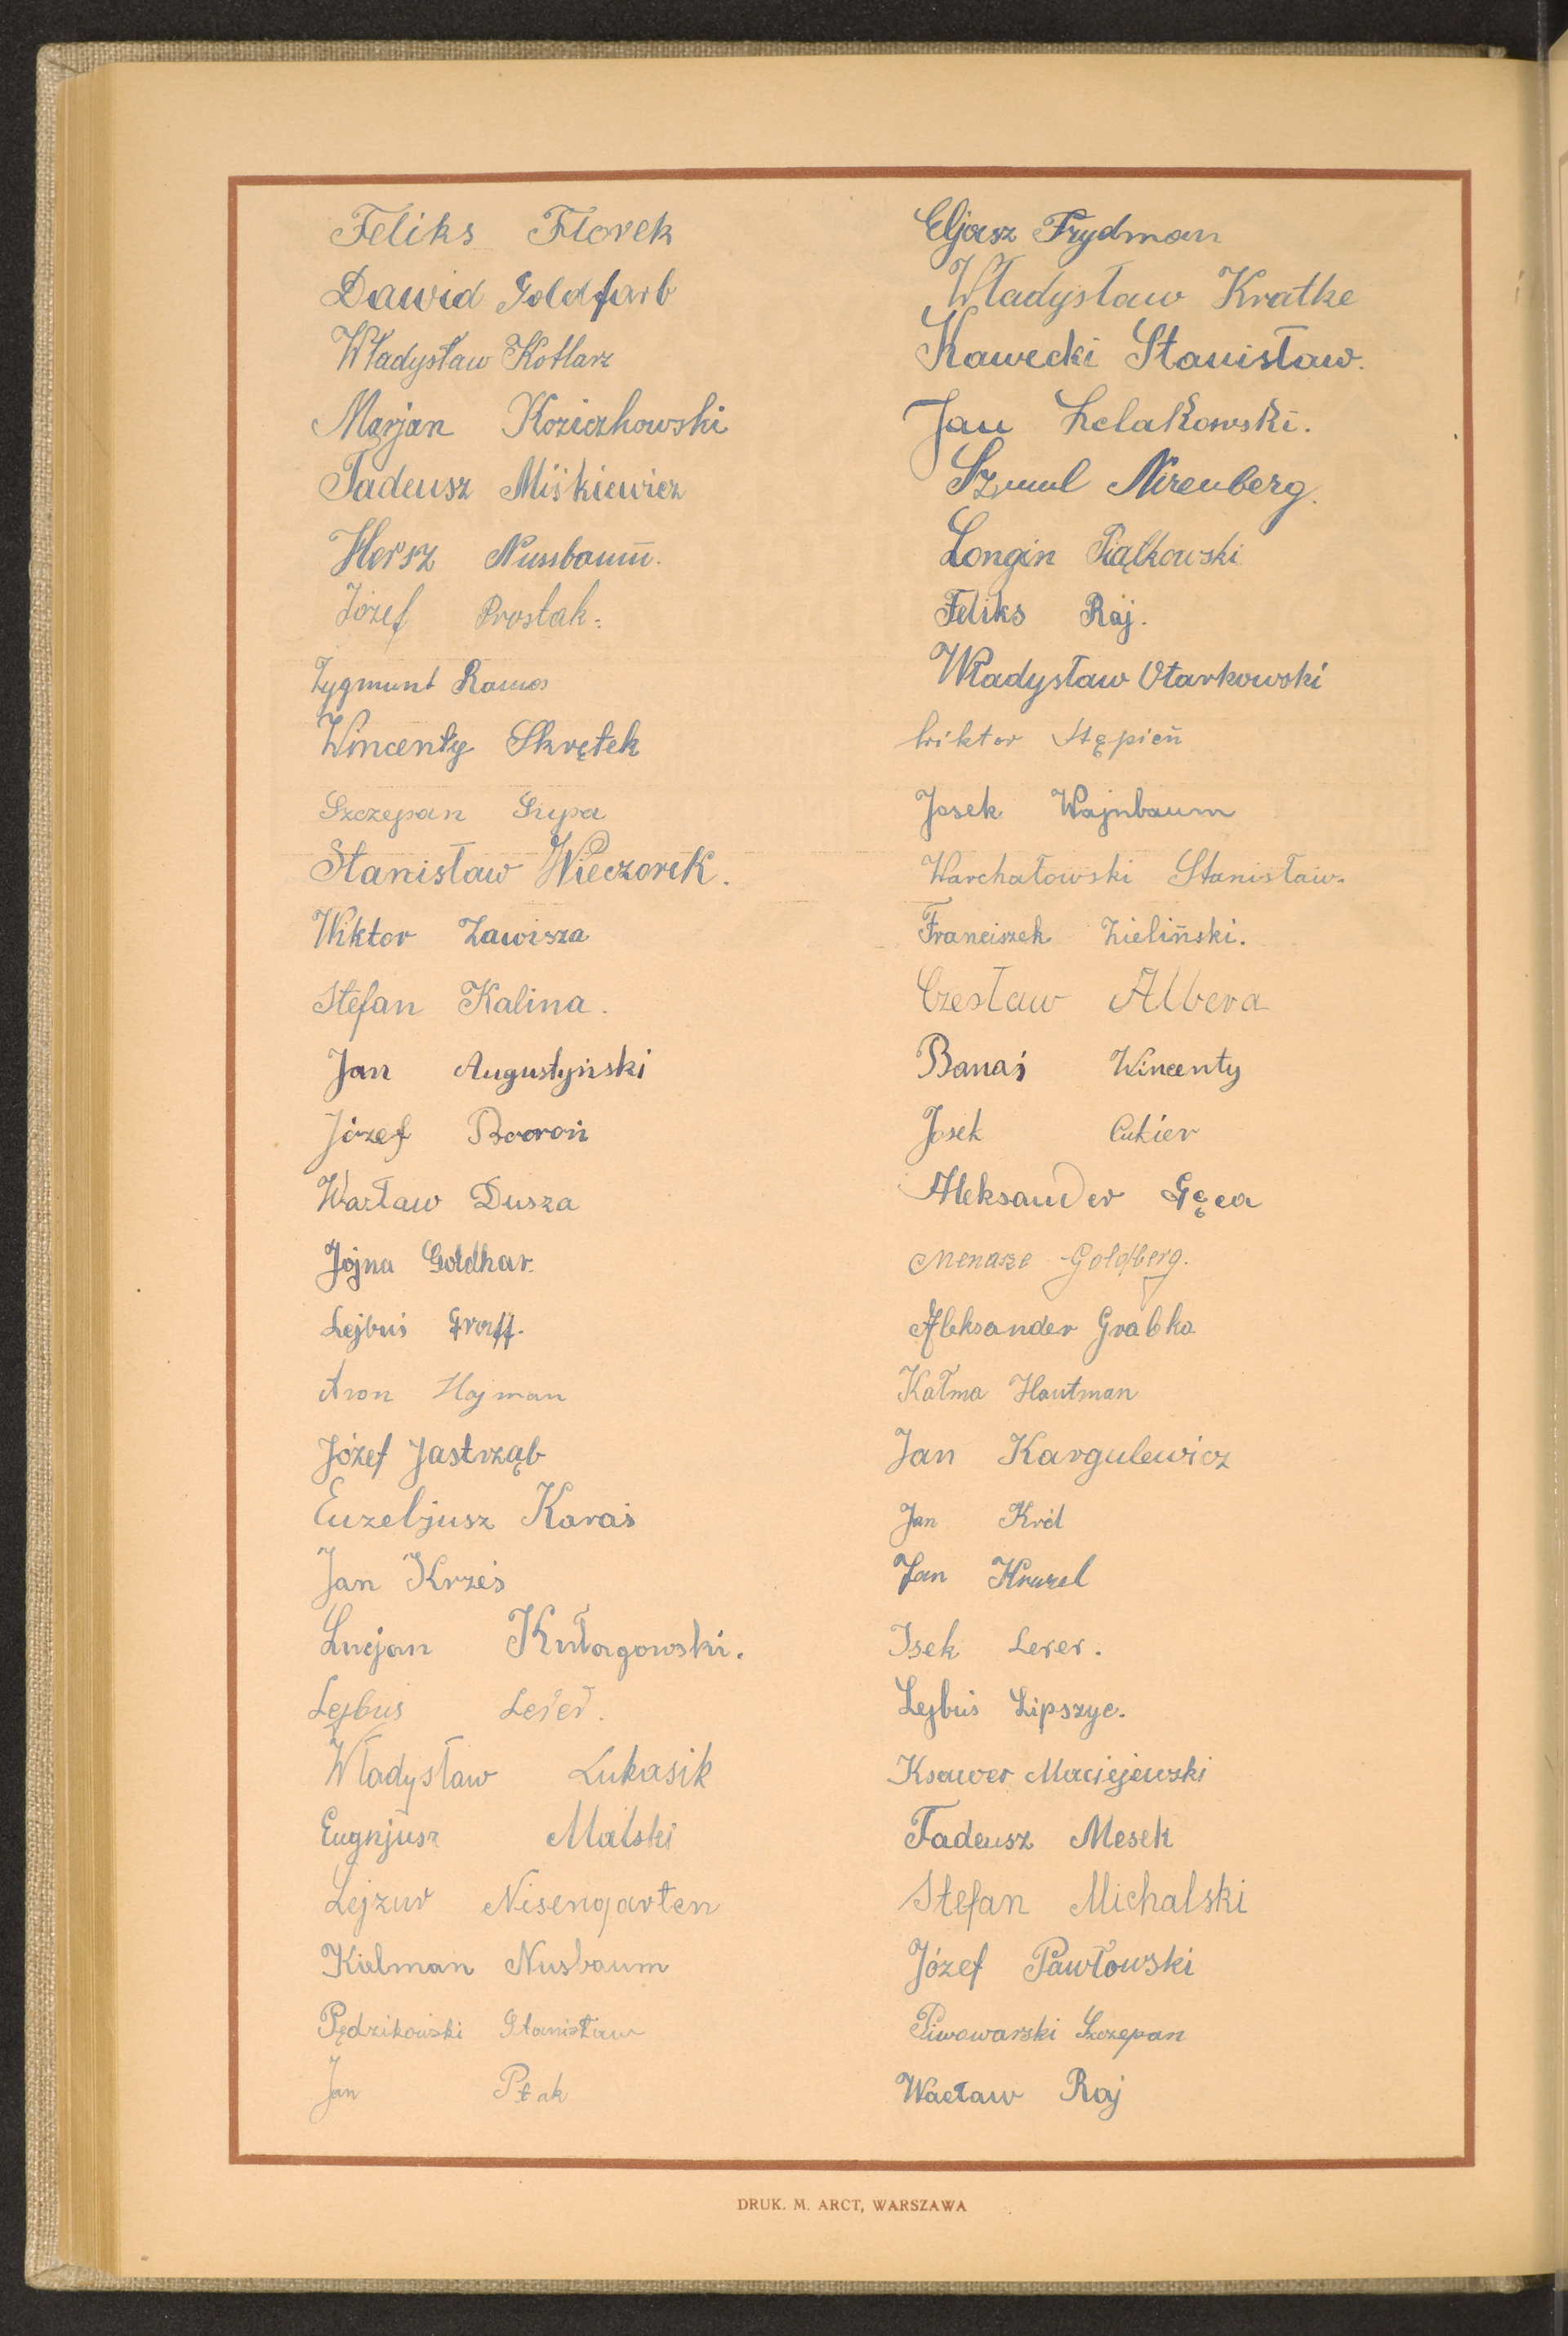 Feliks Florek
Dawid Goldfarb
Władysław Kotlarz
Marjan Koziczkowski
Tadeusz Miśkiewicz
Hersz Nussbaum.
Józef Prostak.
Zygmunt Ramos
Wincenty Skrętek
Szczepan Supa
Stanisław Wieczorek.
Wiktor Zawisza
Stefan Kalina.
Jan Augustyński
Józef Booroń
Wacław Dusza
Jojna Goldhar
Lejbuś Graff.
Aron Hajman
Józef Jastrząb
Euzebjusz Karaś
Jan Krześ
Lucjan Kułagowski.
Lejbuś Lerer.
Władysław Łukasik
Eugnjusz Malski
Lejzur Nisengarten
Kielman Nusbaum
Pędzikowski Stanisław
Jan Ptak
Eljasz Frydman
Władysław Kratke
Kawecki Stanisław.
Jan Lelakowski.
Szmul Nirenberg.
Longin Piątkowski
Feliks Raj.
Władysław Otarkowski
Wiktor Stępień
Josek Wajnbaum
Warchałowski Stanisław.
Franciszek Zieliński.
Czesław Albera
Banaś Wincenty
Josek Cukier
Aleksander Gęca
Menasze Goldberg.
Aleksander Grabka
Kałma Hautman
Jan Kargulewicz
Jan Król
Jan Kruzel
Isek Lerer.
Lejbuś Lipszyc.
Ksawer Maciejewski
Tadeusz Mesek
Stefan Michalski
Józef Pawłowski
Piwowarski Szczepan
Wacław Raj
DRUK. M. ARCT, WARSZAWA